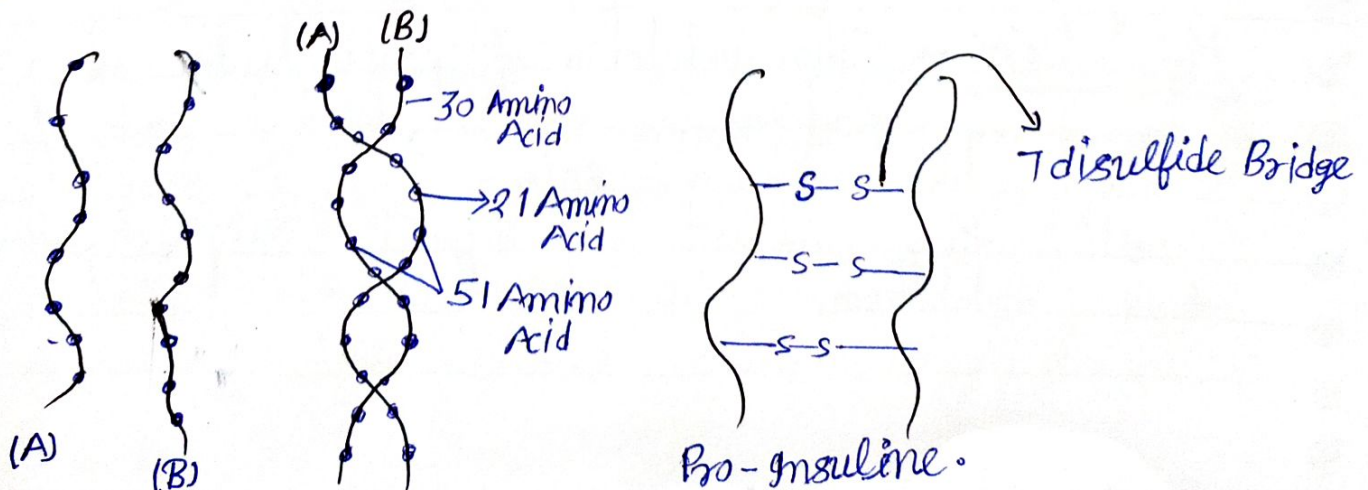 (A) (B)
30 Amino
Acid
21 Amino
Acid
51 Amino
Acid
(A)
(B)
S-S
S-S
S-S
7 disulfide Bridge
Pro-Insuline.